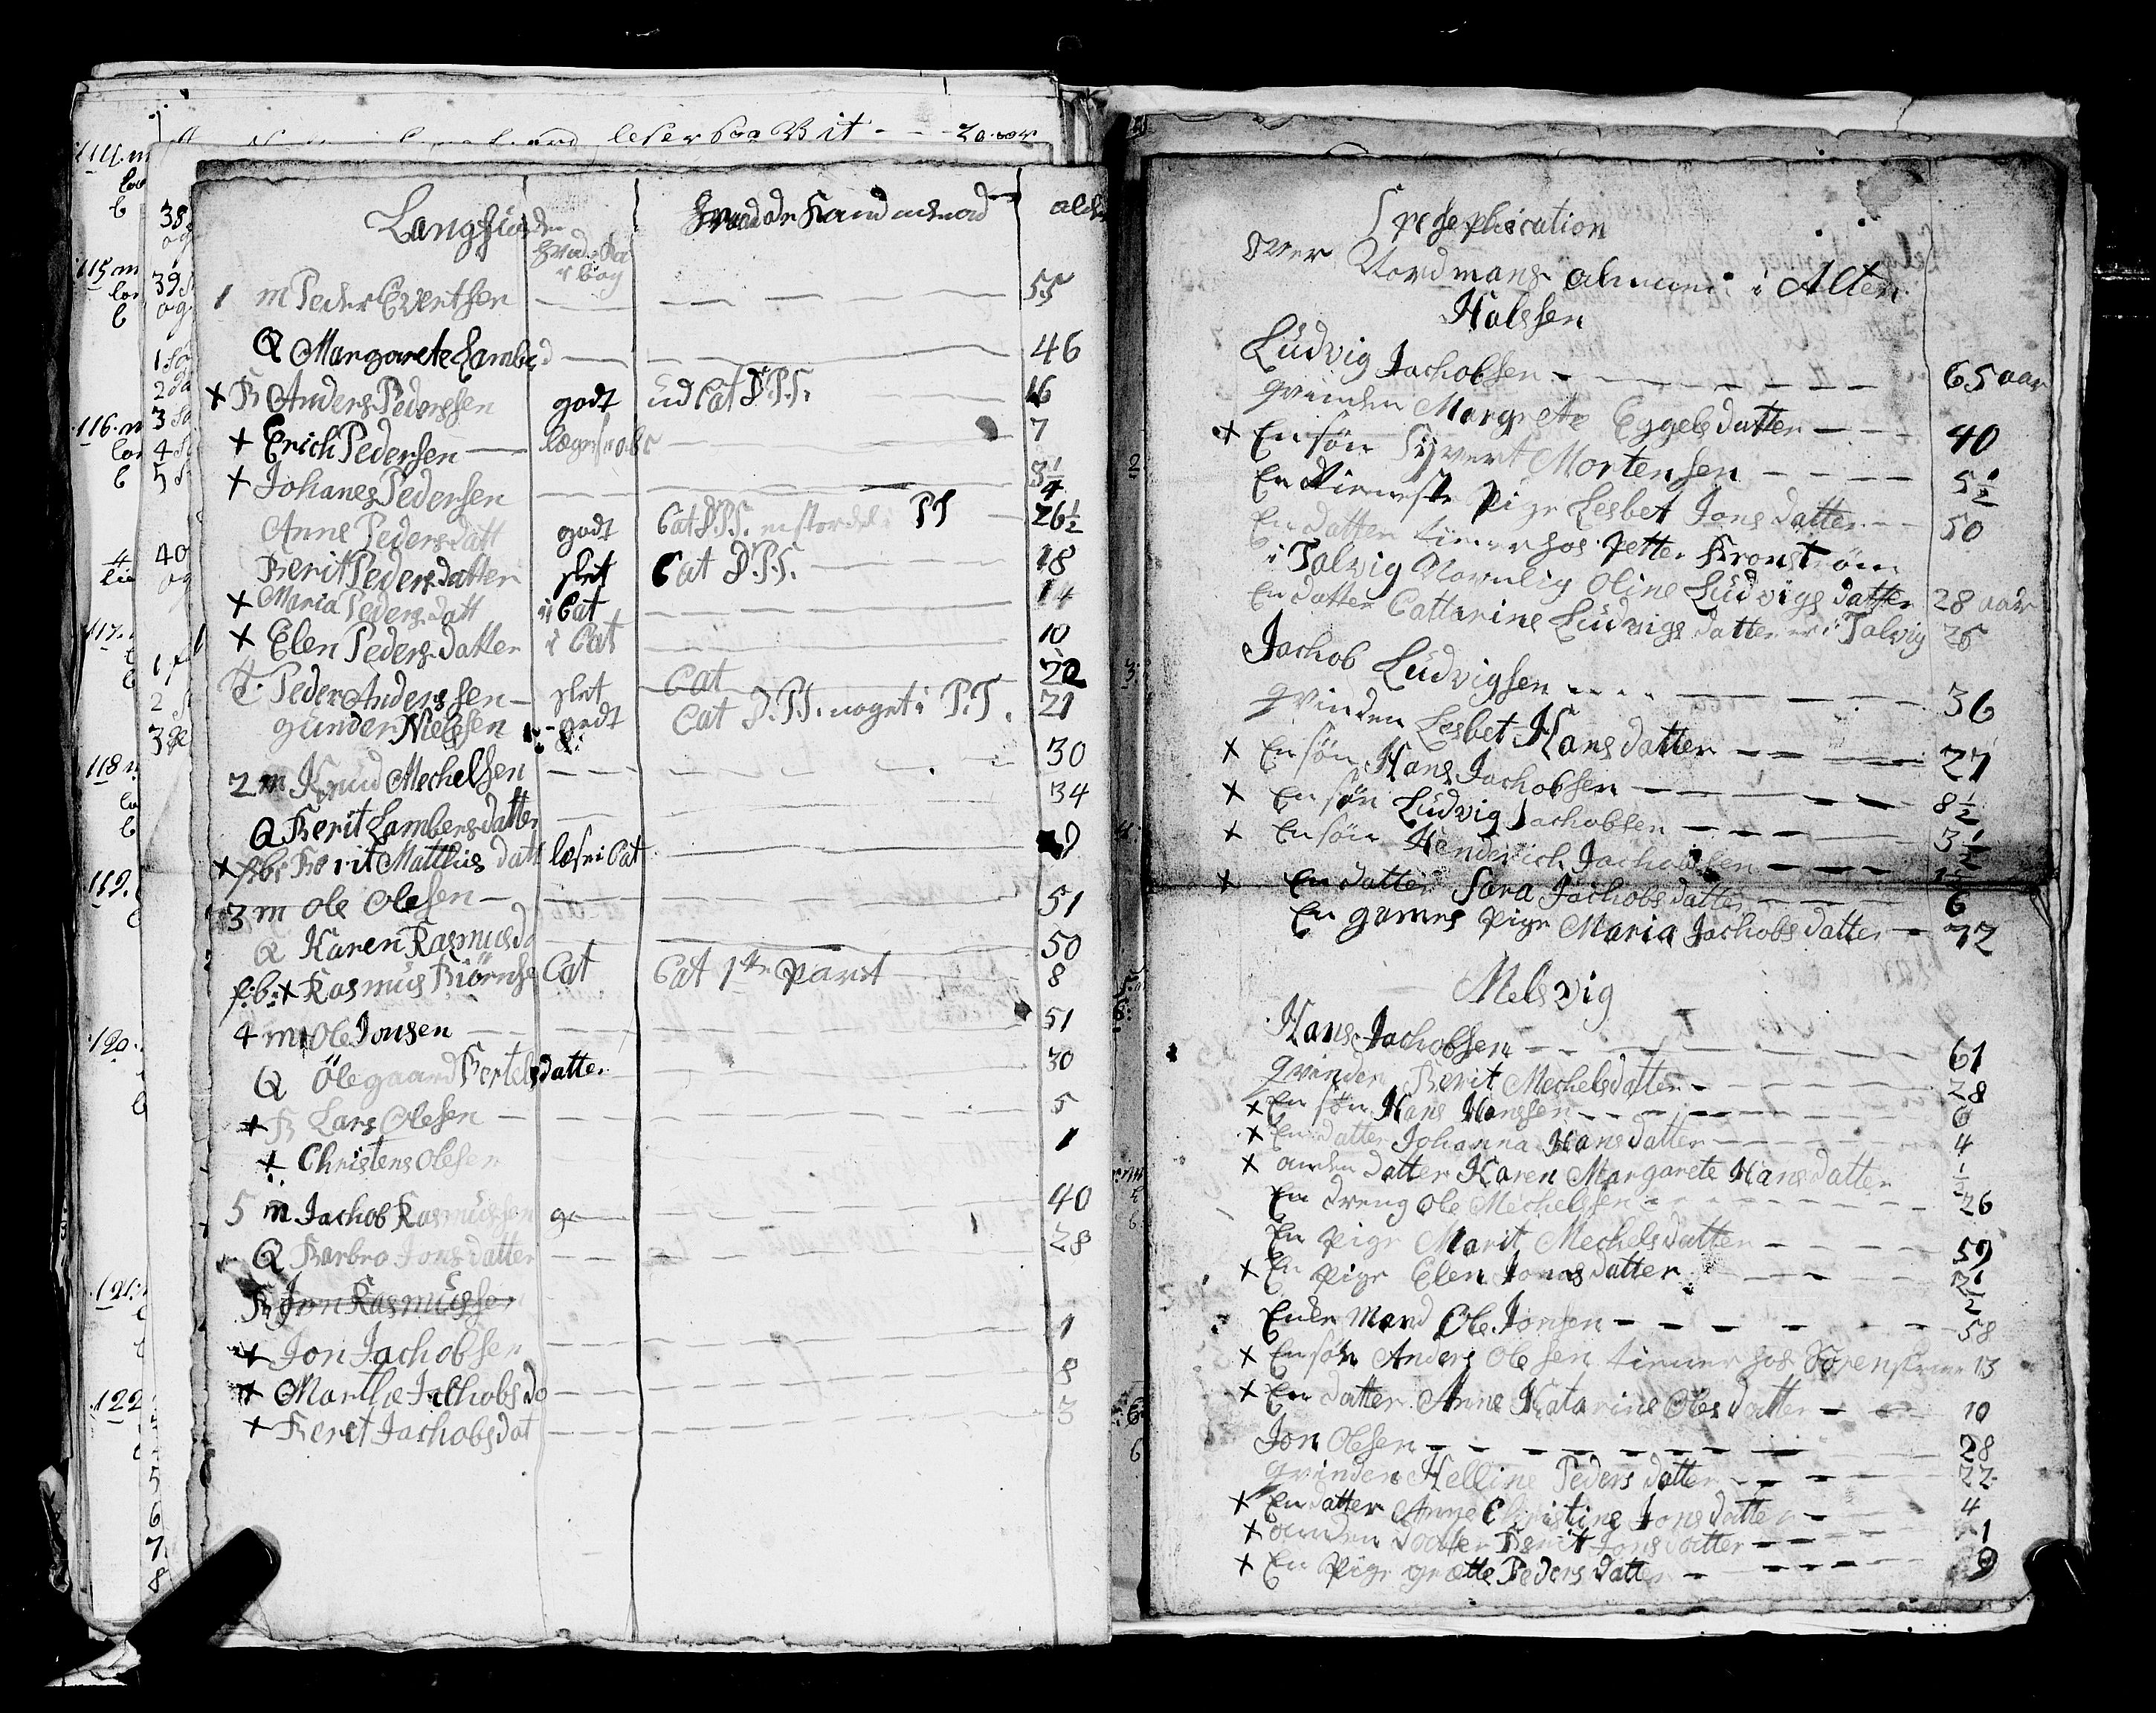 leser paa Bit - - - 20 aar
Langfiorden
hvad de kand udenad
alder
i bog
1 m Peder Evertsen 55
Q Margarete Lambersd 46
+ B Anders Pedersen godt ud Cat D.P.S. 16
+ Erich Pedersen 7
+ Johanes Pedersen 3 1/4
Anne Pedersdatt godt Cat D.P.S. en stor deel i P.S 26 1/2
Berit Pedersdatter slet Cat D.P.S. 18
+ Maria Pedersdatt i Cat 14
+ Elen Pedersdatter i Cat 10
T. Peder Anderssen slet Cat 22
gunder Nielssen godt Cat D.P.S. noget i P.S. 21
2 m Knud Mechelsen 30
Q Berit Lambersdatter 34
+ f:b: Berit Matthisdatt læser i Cat 9
3 m Ole Olesen 51
Q Karen Rasmusda 50
f:b: + Rasmus Biörnse Cat Cat 1ste part 8
4 m Ole Jonsen 51
Q Ölegaard Bertelsdatter 30
+ B Lars Olesen 5
+ Christens Olesen 1
5 m Jachob Rasmussen g 40
Q Barbro Jonsdatter 28
B Jon Rasmussen
+ Jon Jachobsen 1
+ Marthe Jachobsda 8
+ Beret Jachobsdat 3
Specephication
over Nordmans almuen i Alten
Halssen
Ludvig Jachobsen - - - - - - 65 aar
qvinden Margrete Eggelsdatter - - 40
+ En sön Syvert Mortensen - - - - 5 1/2
En tieneste pige Lesbet Jonsdatter - - 50
En datter tiener hos Petter Kronström
i Talvig Navnlig Oline Ludvigsdatter 28 aar
En datter Cattarine Ludvigsdatter er i Talvig 26
Jachob Ludvigsen - - - - - - 36
qvinden Lesbet Hansdatter - - - 27
+ En sön Hans Jachobsen - - - - 8 1/2
+ En sön Ludvig Jachobsen - - - - 3 1/2
+ En sön Hendrich Jachobsen - - -
+ En datter Sara Jachobsdatter - - - 6
En gamel pige Maria Jachobsdatter - 72
Melsvig
Hans Jachobsen - - - - - 61
qvinden Berit Mechelsdatter - - - - 28
+ En sön Hans Hanssen - - - - - 6
+ En datter Johanna Hansdatter - - - - 4
+ anden datter Karen Margarete Hansdatter 1/2
En dreng Ole Mechelsen - - - - - 26
En pige Marit Mechelsdatter - - - - 59
+ En pige Elen Jonasdatter - - - 2 1/2
Enke Mand Ole Jonsen - - - - - - 58
+ En sön Anders Olesen tiener hos 13
+ En datter Anne Katarine Olesdatter - - 10
Jon Olesen - - - - - - - 28
qvinden Helline Pedersdatter - - - - 22
+ En datter Anne Christine Jonsdatter - - 4
+ anden datter Berit Jonsdatter - - - - 1
+ En pige grætte Pedersdatter - - - - 9